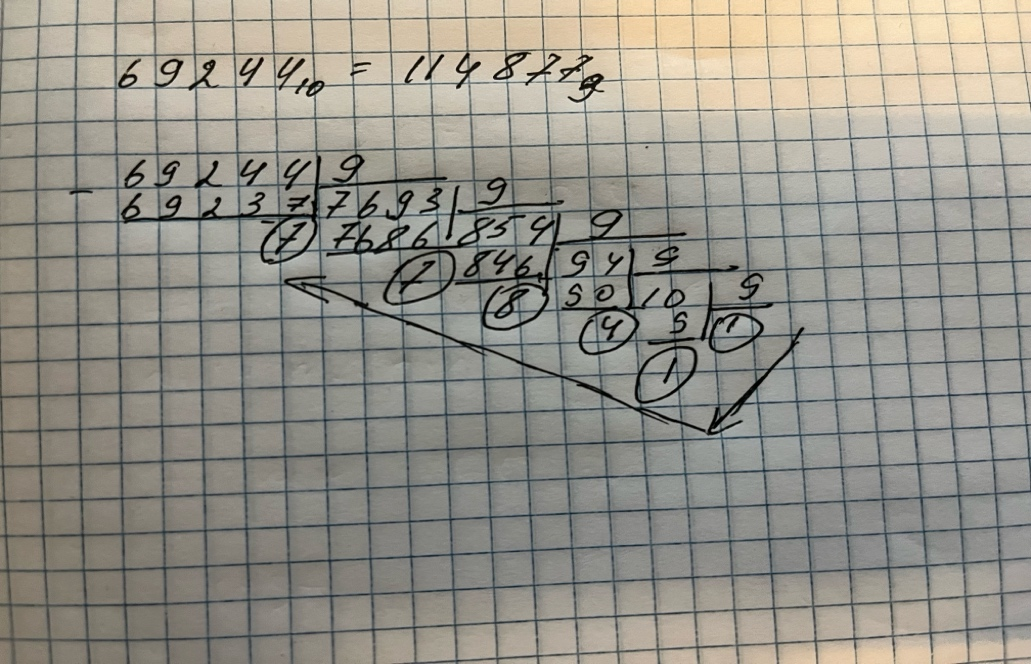 69244₁₀ = 114877₉
- 69244 | 9
69237 | 7693 | 9
7 7686 | 854 | 9
7 846 | 94 | 9
8 90 | 10 | 9
4 9 1
1